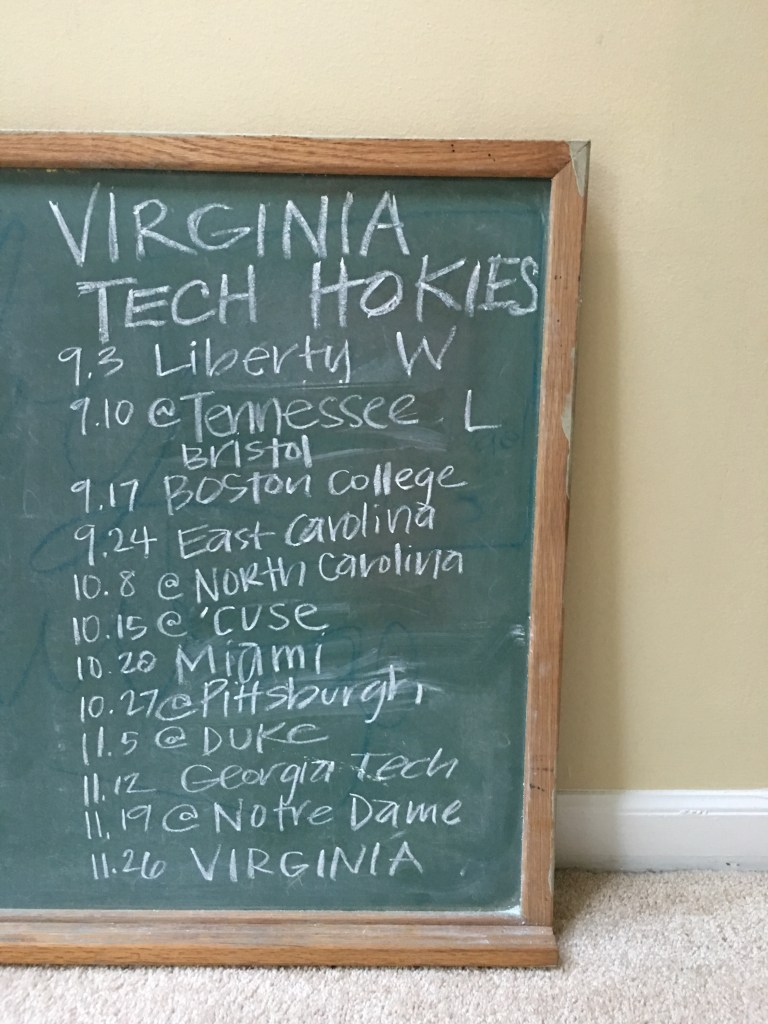 VIRGINIA
TECH HOKIES
9.3 Liberty W
9.10 @Tennessee L
Bristol
9.17 Boston College
9.24 East Carolina
10.8 @ North Carolina
10.15 @ 'CUSE
10.20 Miami
10.27 @Pittsburgh
11.5 @ DUKE
11.12 Georgia Tech
11.19 @ Notre Dame
11.26 VIRGINIA